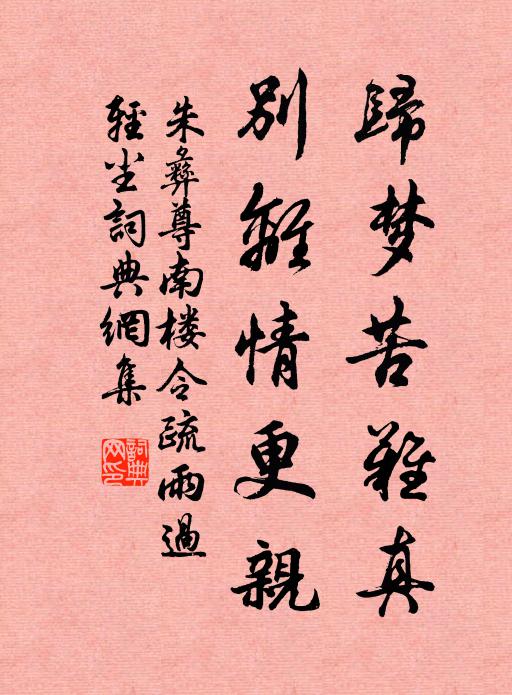 歸梦苦難真
別離情更親
朱彝尊南楼令疏雨過
輕尘詞典網集
詞典网印